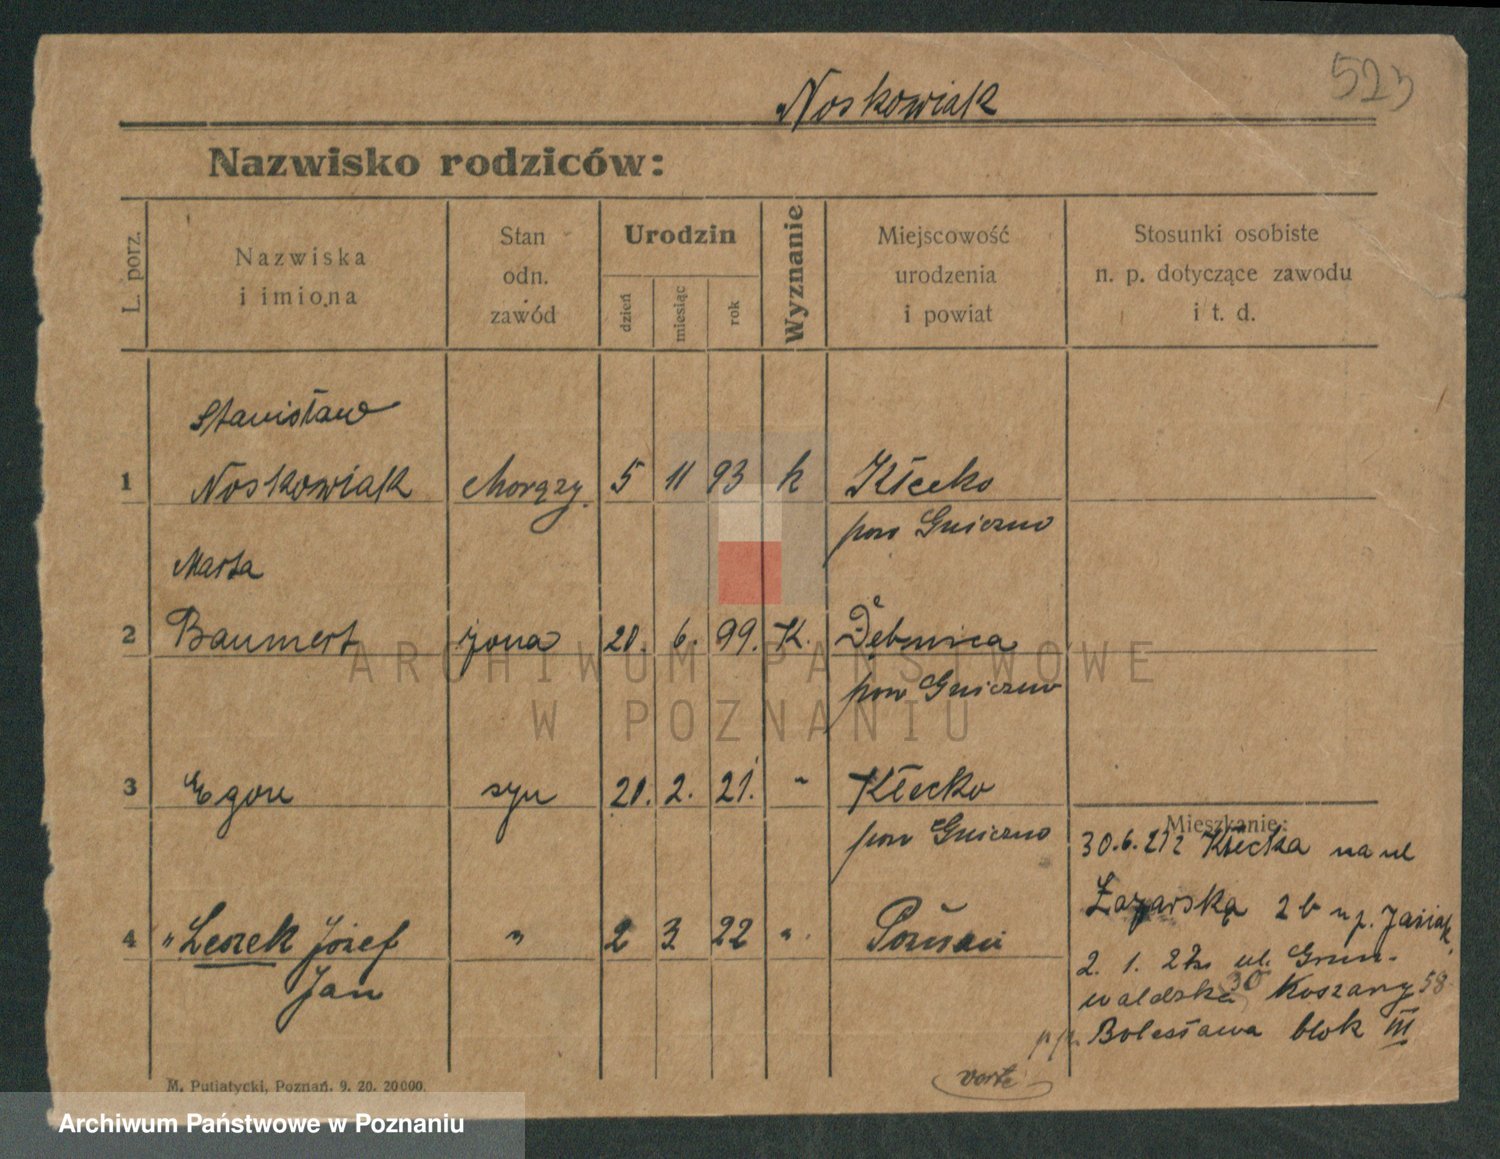 523
Noskowiak
Nazwisko rodziców:
L. porz.
Nazwiska
i imiona
Stan
odn.
zawód
Urodzin
dzień
miesiąc
rok
Wyznanie
Miejscowość
urodzenia
i powiat
Stosunki osobiste
n. p. dotyczące zawodu
i t. d.
Stanisław
1 Noskowiak chorąży 5 11 93 k Kłecko
pow Gniezno
Marta
2 Baumert żona 20. 6. 99. K. Dębnica
pow Gniezno
3 Egon syn 20. 2. 21. " Kłecko
pow Gniezno
Mieszkanie:
30.6.21 z Kłecka na ul
Łazarską 2b u p. Jasiak
4 " Leszek Józef " 2 3 22 " Poznań
Jan
2. 1. 22 ul. Grun-
waldzka 30 Koszary 58
p.p. Bolesława blok III
verte
M. Putiatycki, Poznań. 9. 20. 20000.
ARCHIWUM PAŃSTWOWE
W POZNANIU
Archiwum Państwowe w Poznaniu